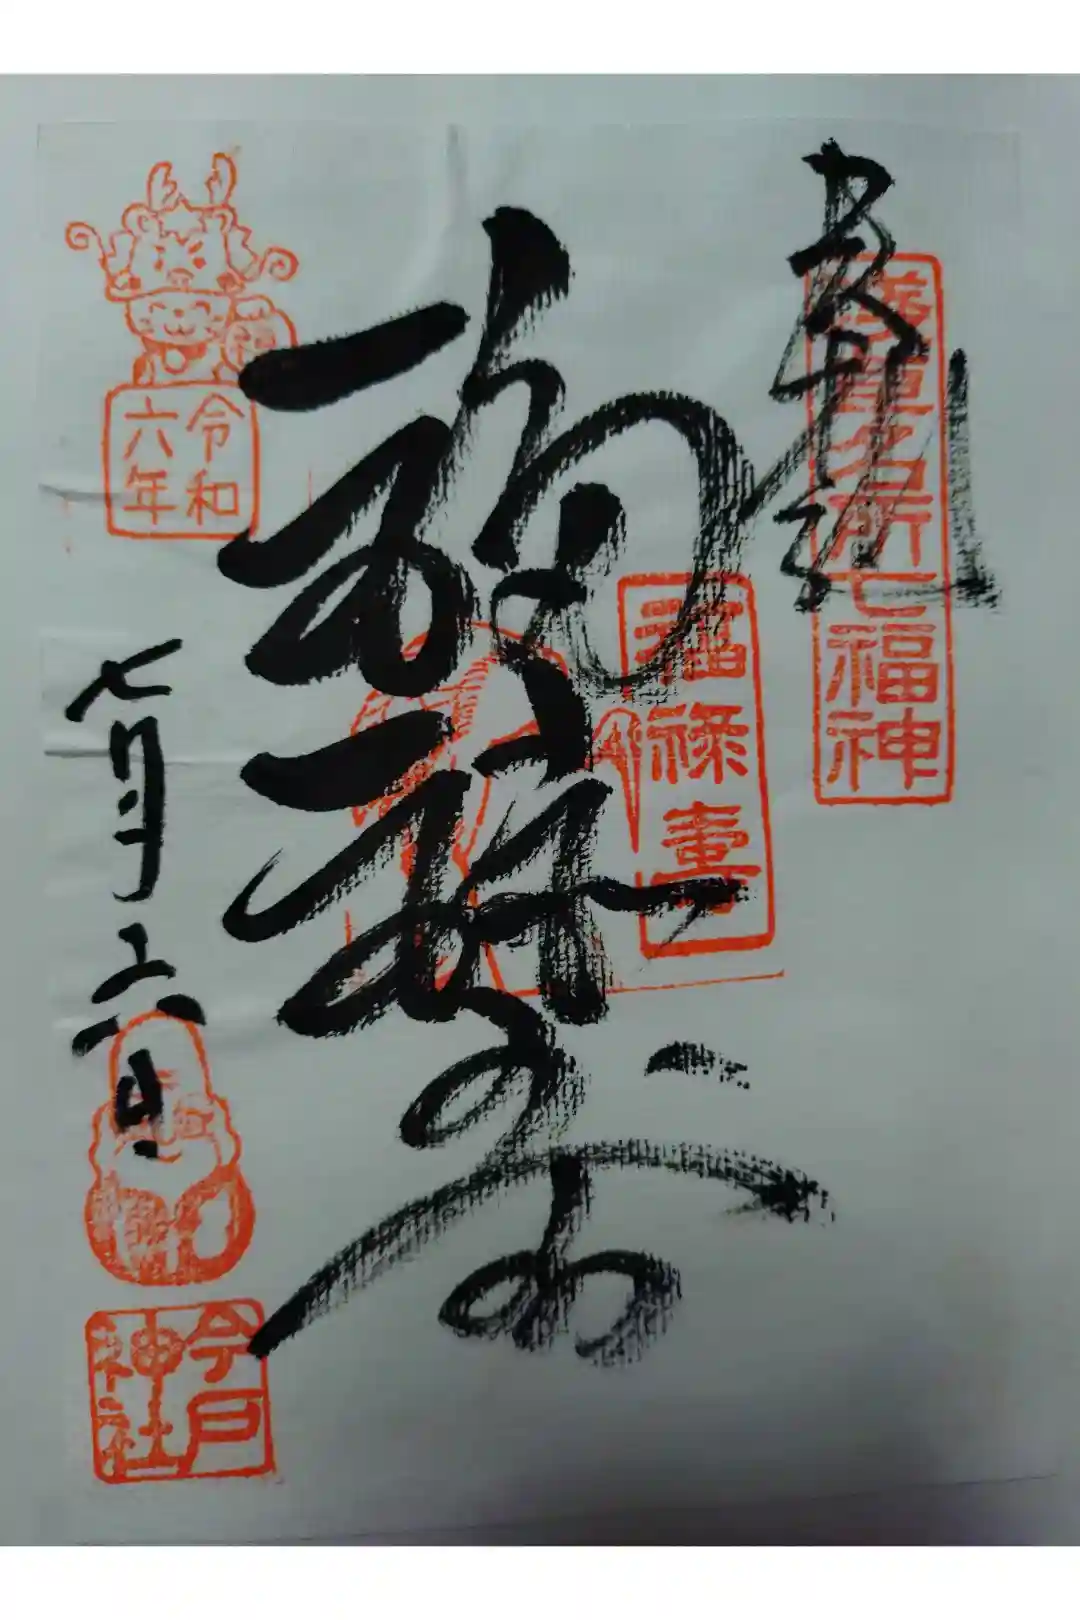 奉拝
浅草名所七福神
福禄寿
福禄壽
令和
六年
七月
今戸
神社